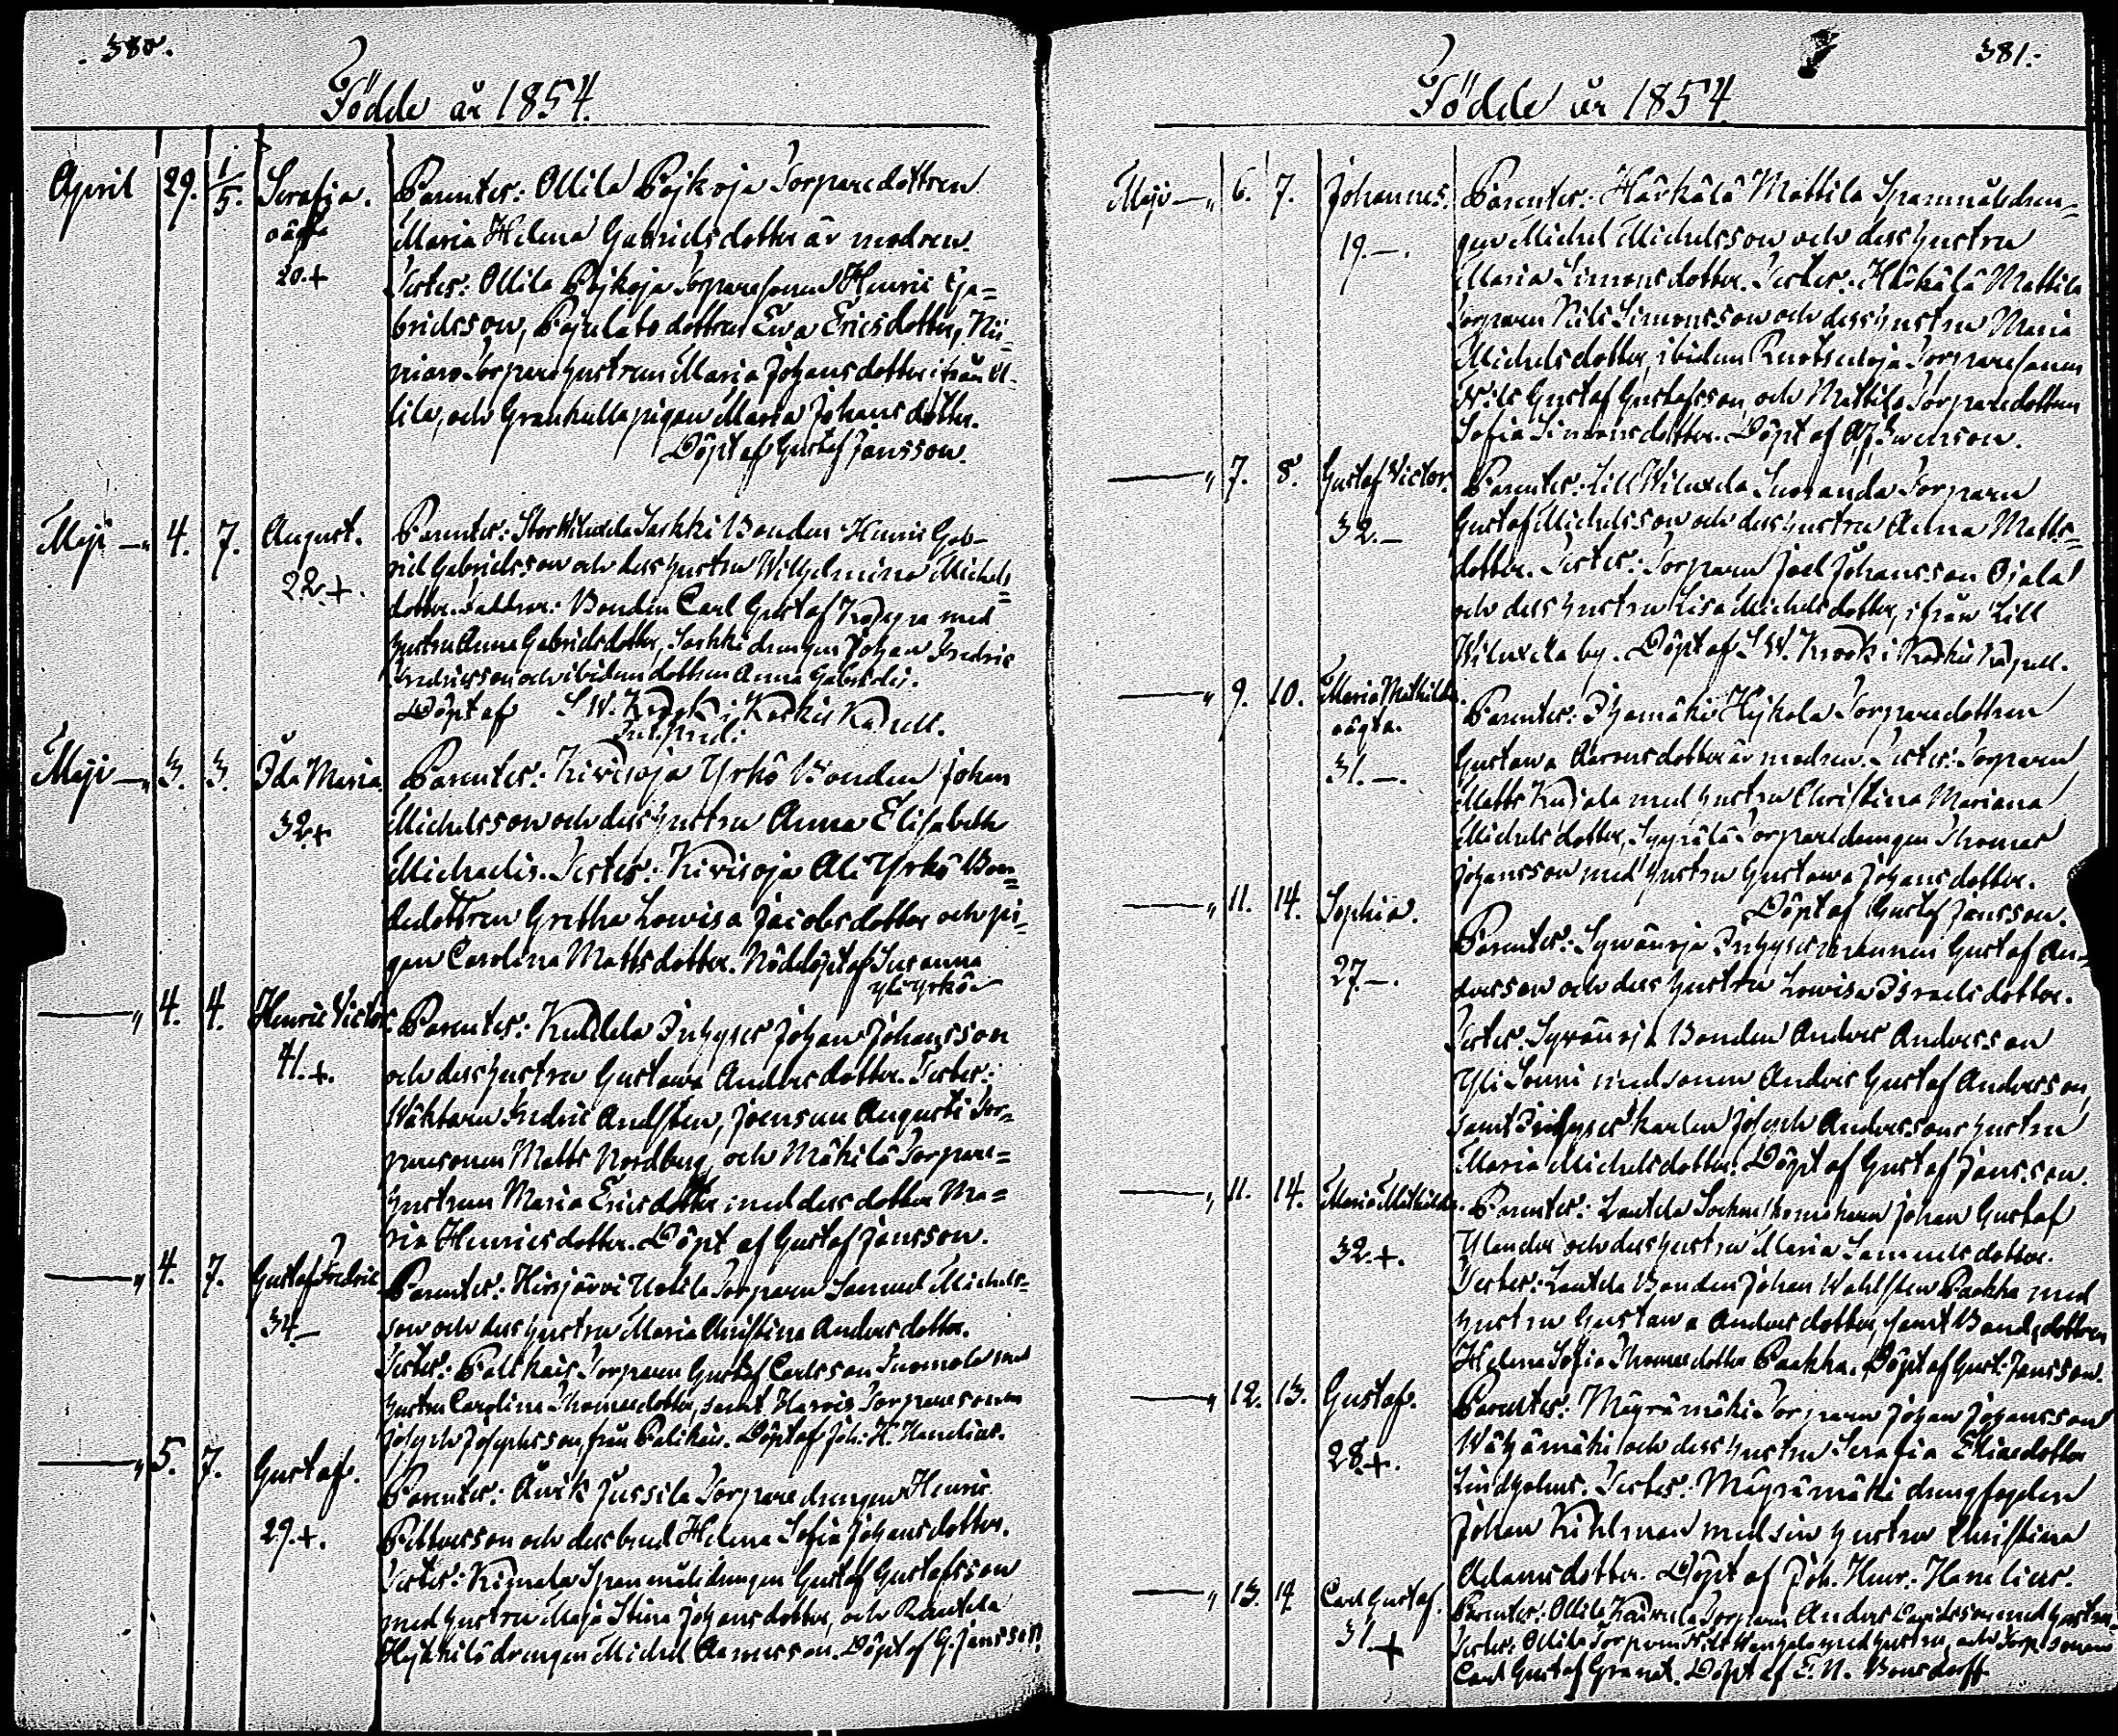 380.
Födde år 1854.
April 29. 1/5. Serafia. Parentes: Ollila Torparedottren
oägta Maria Helena Gabrielsdotter är modren.
20.+ Testes: Ollila Torparesonen Henric Ga=
brielsson, dottren Eva Ericsdotter,
Torpare hustrun Maria Johansdotter ifrån Ol-
lila, och Grankulla pigan Maria Johansdotter.
Döpt af Gustaf Jansson.
Maji 4. 7. August. Parentes: Bonden Henric Gab-
22.+. riel Gabrielsson och dess hustru Wilhelmina Michels=
dotter. Bonden Carl Gustaf med
hustru Anna Gabrielsdotter, drengen Johan Fredric
Fredricsson och ibidem dottren Anna
Döpt af i Koskis Kapell.
Maji 3. 3. Ida Maria. Parentes: Kivisoja Yrkö Bonden Johan
32+ Michelsson och dess hustru Anna Elisabeth
Michaelis. Testes: Kivisoja Ali Yrkö Bon=
dedottren Gretha Lowisa Jacobsdotter och pi=
gan Carolina Mattsdotter. Nöddöpt af Susanna
Yli Yrkö
4. 4. Henric Victor. Parentes: Inhyses Johan Johansson
41.+. och dess hustru Gustava Andersdotter. Testes:
Wäktaren Fredric Joensuu Augusti Tor=
paresonen Matts Nordberg, och Mäkilä Torpare=
hustrun Maria Ericsdotter med dess dotter Ma=
ria Henricsdotter. Döpt af Gustaf Jansson.
4. 7. Gustaf Fredric Parentes: Hirsjärvi Uotila Torparen Samuel Michels-
34.- son och dess hustru Maria Christina Andersdotter.
Testes: Torparen Gustaf Carlsson Tuomola med
hustru Carolina Thomasdotter, samt Torparesonen
Joseph Josephsson, från Palikais. Döpt af Joh. H. Hanelius.
5. 7. Gustaf. Parentes: Äwik Jussila Torpare drengen Henric
29.+. och dess hustru Helena Sofia Johansdotter.
Testes: Spanmålsdrengen Gustaf Gustafsson
med hustru Maja Stina Johansdotter, och Rautela
Heikkilä drengen Michel Döpt af G. Jansson.
381.
Födde år 1854.
Maji 6. 7. Johannes. Parentes: Härkälä Mattila Spanmålsdren=
19.-. gen Michel Michelsson och dess hustru
Maria Simonsdotter. Testes: Härkälä Mattila
Torparen Nils Simonsson och dess hustru Maria
Michelsdotter, ibidem Torparesonen
Nils Gustaf Gustafsson, och Mattila Torparedottren
Sofia Simonsdotter. Döpt af
7. 8. Gustaf Victor. Parentes: Lill Wiluxela Torparen
32.- Gustaf Michelsson och dess hustru Anna Matts=
dotter. Testes: Torparen Joel Johansson Ojala
och dess hustru Lisa Michelsdotter, ifrån Lill
Wiluxela by. Döpt af i Koskis Kapell.
9. 10. Maria Mathilda. Parentes: Torparedottren
oägta. Gustava är modren. Testes: Torparen
31.-. Matts med hustru Christina Mariana
Michelsdotter, Torparedrengen Thomas
Johansson med hustru Gustawa Johansdotter.
Döpt af Gustaf Jansson.
11. 14. Sophia. Parentes: Syvänoja Inhysesmannen Gustaf An=
27.-. dersson och dess hustru Lowisa Israelsdotter.
Testes: Syvänoja Bonden Anders Andersson
Yli Sonni med sonen Anders Gustaf Andersson,
samt Inhyses karlen Joseph Anderssons hustru
Maria Michelsdotter. Döpt af Gustaf Jansson.
11. 14. Maria Mathilda. Parentes: Sockneskomakaren Johan Gustaf
32.+. Ylander och dess hustru Maria Samuelsdotter.
Testes: Bonden Johan Wahlsten Paakka med
hustru Gustawa Andersdotter, samt Bondedottren
Helena Sofia Thomasdotter Paakka. Döpt af Gust. Jansson.
12. 13. Gustaf. Parentes: Mäyrämäki Torparen Johan Johansson
28.+. Wähämäki och dess hustru Serafia Eliasdotter
Lindholm. Testes: Mäyrämäki drengfogden
Johan Kihlman med sin hustru Christina
Adamsdotter. Döpt af Joh. Henr. Hanelius.
13. 14. Carl Gustaf. Parentes: Ollila Torparen Anders Davidsson med hustru
31.+ Testes: Ollila Torparen med hustru, och
Carl Gustaf Granat. Döpt af E. N. Bonsdorff.